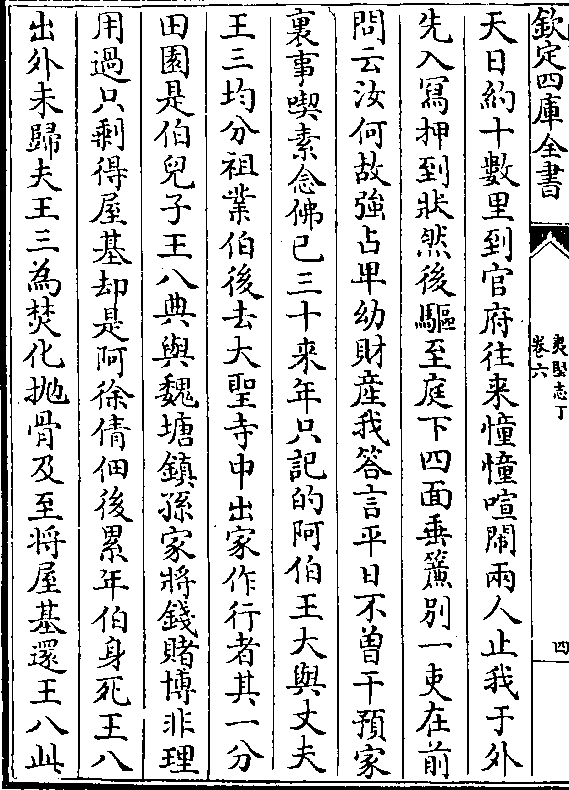 欽定四庫全書
夷堅志丁
卷六
四
天日約十數里到官府往来憧憧喧閙兩人止我于外
先入寫押到狀然後驅至庭下四面垂簾別一吏在前
問云汝何故強占卑幼財產我答言平日不曽干預家
裏事喫素念佛已三十来年只記的阿伯王大與丈夫
王三均分祖業伯後去大聖寺中出家作行者其一分
田園是伯兒子王八典與魏塘鎮孫家將錢賭博非理
用過只剰得屋基却是阿徐倩佃後累年伯身死王八
出外未歸夫王三為焚化抛骨及至將屋基還王八此